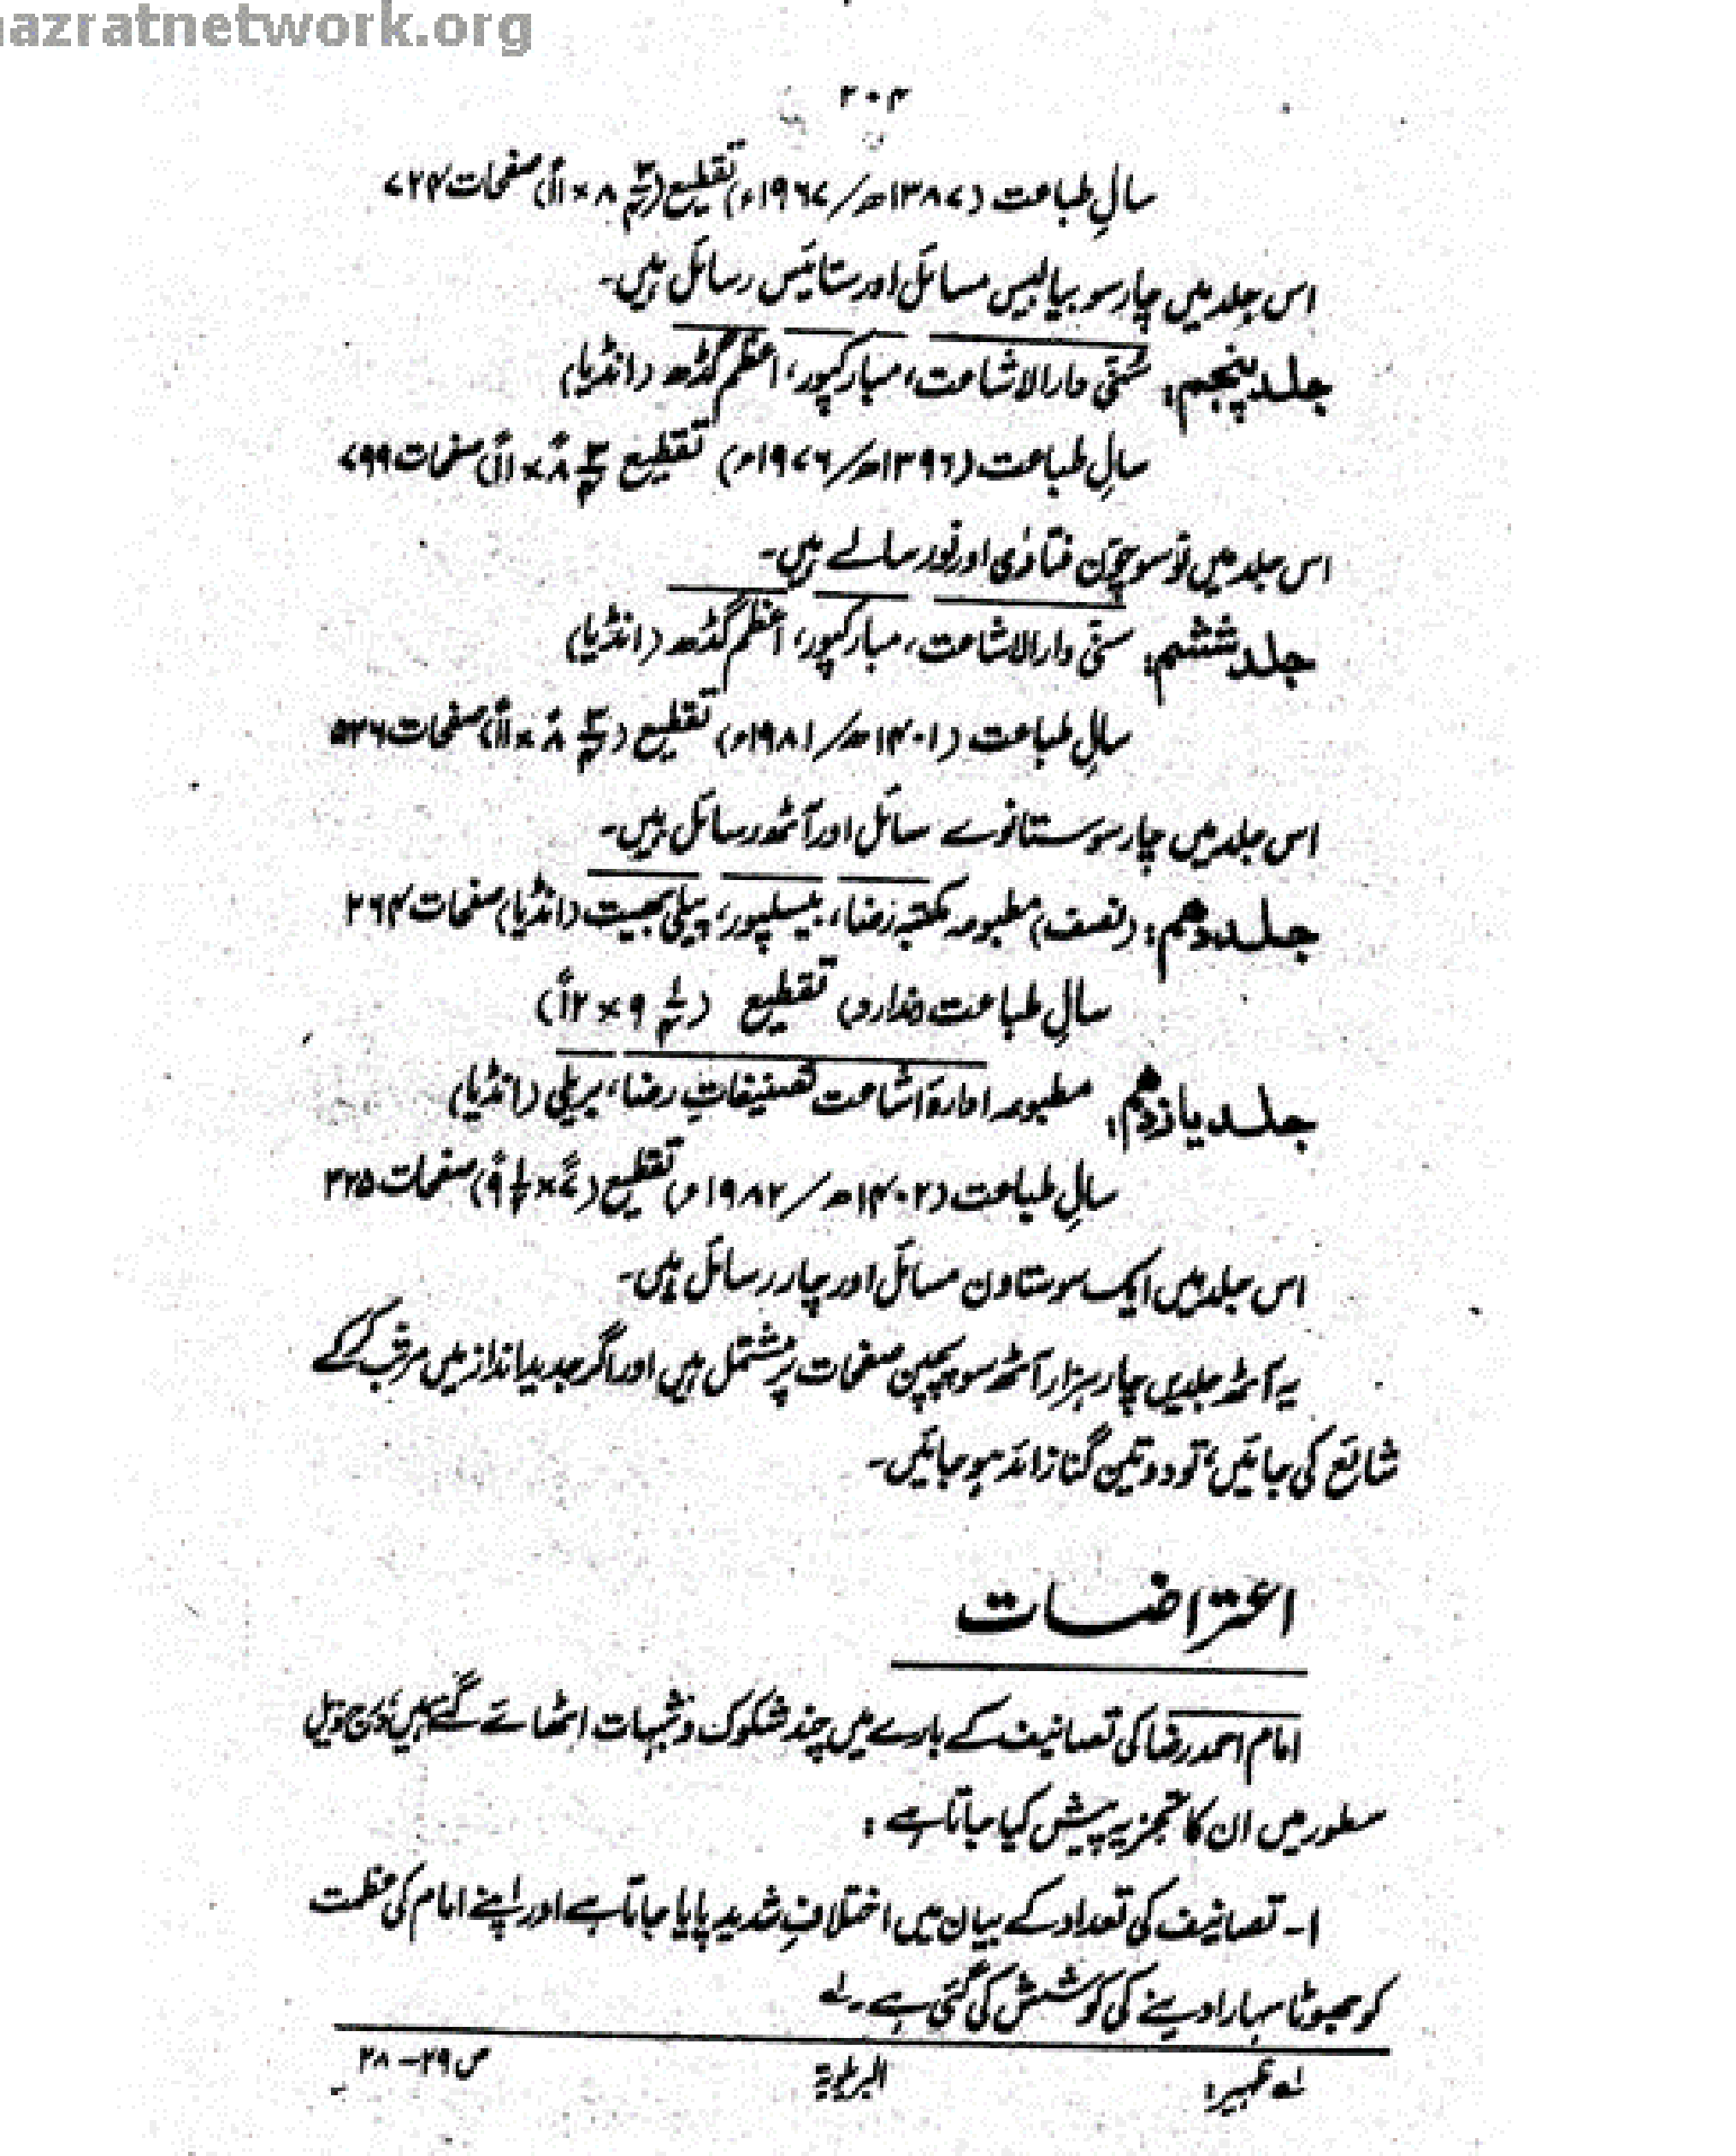 hazratnetwork.org
۲۰۴
سالِ طباعت (۱۳۸۷ھ/۱۹۶۷ء) تقطیع (۳/۴ ۸ × ۱۱ً) صفحات ۷۲۴
اس جلد میں چار سو بیالیس مسائل اور ستائیس رسائل ہیں۔
جلد پنجم: سُنّی دارالاشاعت، مبارکپور، اعظم گڈھ (انڈیا)
سالِ طباعت (۱۳۹۶ھ/۱۹۷۶ء) تقطیع ۳/۴ ۸ً × ۱۱ً) صفحات ۷۹۹
اس جلد میں نو سو چوّن فتاوٰی اور نو رسالے ہیں۔
جلد ششم: سنی دارالاشاعت، مبارکپور، اعظم گڈھ (انڈیا)
سالِ طباعت (۱۴۰۱ھ/۱۹۸۱ء) تقطیع (۳/۴ ۸ً × ۱۱ً) صفحات ۵۳۶
اس جلد میں چار سو ستانوے سائل اور آٹھ رسائل ہیں۔
جلد دہم: (نصف) مطبوعہ مکتبہ رضا، بیسلپور، پیلی بھیت (انڈیا) صفحات ۲۶۴
سالِ طباعت (ندارد) تقطیع (۱/۴ ۹ × ۱۲ً)
جلد یازدہم: مطبوعہ ادارۂ اشاعت تصنیفاتِ رضا، بریلی (انڈیا)
سالِ طباعت (۱۴۰۲ھ/۱۹۸۲ء) تقطیع (۷ً × ۱/۲ ۹ً) صفحات ۳۲۵
اس جلد میں ایک سو ستاون مسائل اور چار رسائل ہیں۔
یہ آٹھ جلدیں چار ہزار آٹھ سو پچپن صفحات پر مشتمل ہیں اور اگر جدید انداز میں مرتب کر کے
شائع کی جائیں، تو دو تین گنا زائد ہو جائیں۔
اعتراضات
امام احمد رضا کی تصانیف کے بارے میں چند شکوک و شبہات اٹھائے گئے ہیں،
سطور میں ان کا تجزیہ پیش کیا جاتا ہے:
۱۔ تصانیف کی تعداد کے بیان میں اختلافِ شدید پایا جاتا ہے اور اپنے امام کی عظمت
کو جھوٹا سہارا دینے کی کوشش کی گئی ہے۔ لے
لے ظہیر: البریلویۃ ص ۲۹-۲۸